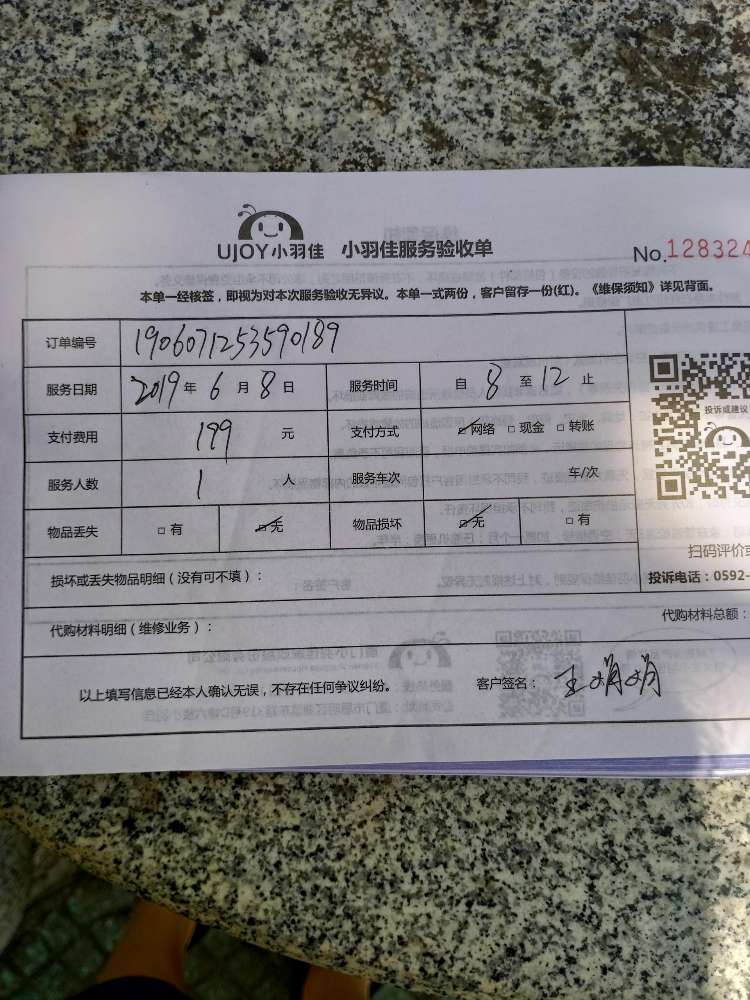 UJOY小羽佳 小羽佳服务验收单 No.128324
本单一经核签，即视为对本次服务验收无异议。本单一式两份，客户留存一份(红)。《维保须知》详见背面。
订单编号 1906071253590189
服务日期 2019年6月8日 服务时间 自8至12止
支付费用 199元 支付方式 ☑网络 □现金 □转账
服务人数 1人 服务车次 车/次
物品丢失 □有 ☑无 物品损坏 ☑无 □有
投诉或建议
扫码评价或
投诉电话：0592-
损坏或丢失物品明细（没有可不填）：
代购材料明细（维修业务）： 代购材料总额：
以上填写信息已经本人确认无误，不存在任何争议纠纷。 客户签名：王娟娟